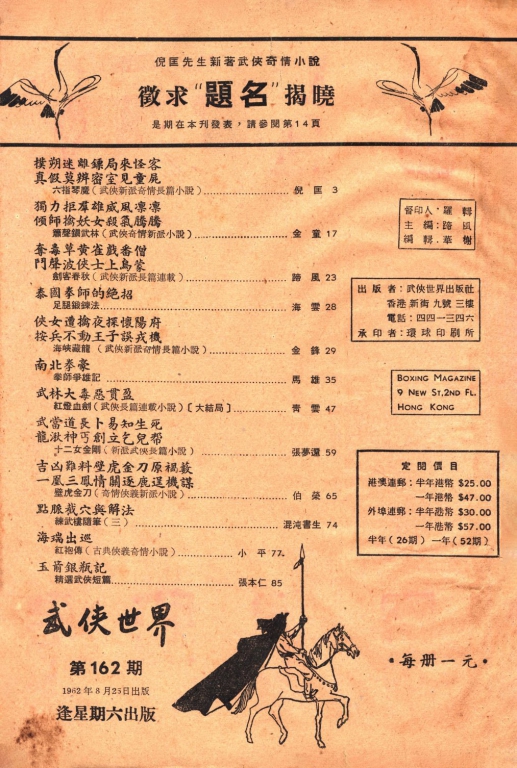 倪匡先生新著武俠奇情小說
徵求"題名"揭曉
是期在本刊發表，請參閱第14頁
撲朔迷離鏢局來怪客
真假莫辨密室見童屍
六指琴魔（武俠新派奇情長篇小說）............倪匡 3
獨力拒羣雄威風凛凛
傾師擒妖女殺氣騰騰
簫聲鎮武林（武俠奇情新派小說）............金童 17
奪毒草黃雀戲番僧
鬥聲波俠士上島蒙
劍客春秋（武俠新派長篇連載）............蹄風 23
泰國拳師的絕招
足腿鍛鍊法............海雲 28
俠女遭擒夜探懷陽府
按兵不動王子誤戎機
海峽藏龍（武俠新派奇情長篇小說）............金鋒 29
南北拳豪
拳師爭雄記............馬雄 35
武林大毒惡貫盈
紅燈血劍（武俠長篇連載小說）〔大結局〕............青雲 47
武當道長卜易知生死
龍湫神丐創立乞兒幫
十二女金剛（新派武俠長篇小說）............張夢還 59
吉凶難料壁虎金刀原褐載
一凰三鳳情關逐鹿逞機謀
壁虎金刀（奇情俠義新派小說）............伯榮 65
點脈截穴與解法
練武樓隨筆（三）............混沌書生 74
海瑞出巡
紅袍傳（古典俠義奇情小說）............小平 77
玉甯銀瓶記
精選武俠短篇............張本仁 85
督印人：羅輯
主編：蹄風
編輯：華樹
出版者：武俠世界出版社
香港新街九號三樓
電話：四四一三四六
承印者：環球印刷所
BOXING MAGAZINE
9 NEW ST,2ND FL.
HONG KONG
定閱價目
港澳連郵：半年港幣 $25.00
一年港幣 $47.00
外埠連郵：半年港幣 $30.00
一年港幣 $57.00
半年（26期）一年（52期）
武俠世界
第162期
1962年8月25日出版
逢星期六出版
·每册一元·